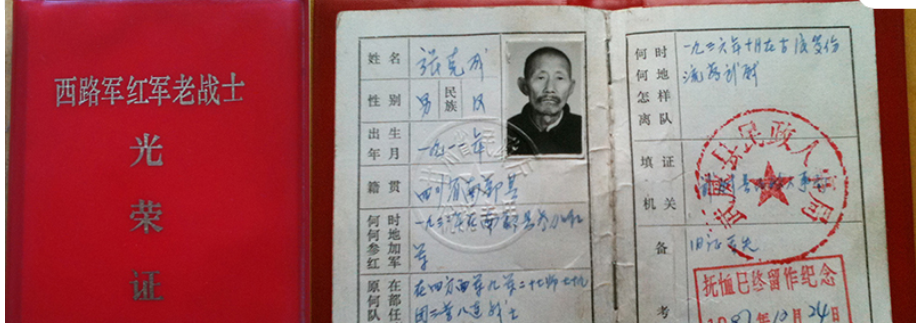 西路军红军老战士
光
荣
证
姓名
张克成
性别
男
民族
汉
出生
年月
一九一一年
籍贯
四川省南部县
何时
何地
参加
红军
一九三三年在南部县参加红
军
原在
何部
队任
在四方面军九军二十七师七十九
团三营八连战士
何时
何地
怎样
离队
一九三六年十月在古浪负伤
流落
填证
机关
县人民政
备
考
旧证丢失
抚恤已终留作纪念
1987年10月24日